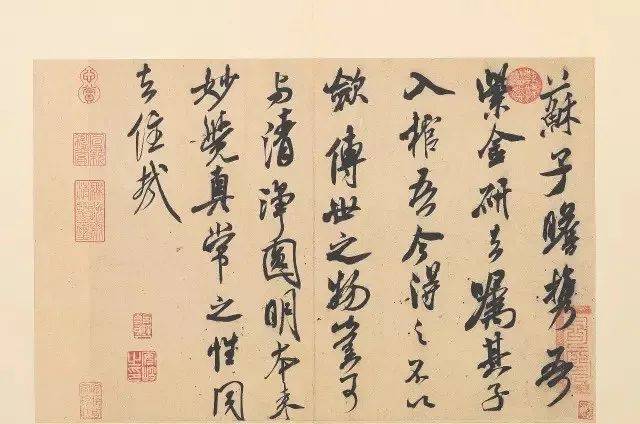 蘇子瞻攜吾
紫金研去囑其子
入棺吾今得之不以
歛傳世之物豈可
与清淨圓明本来
妙覺真常之性同
去住哉